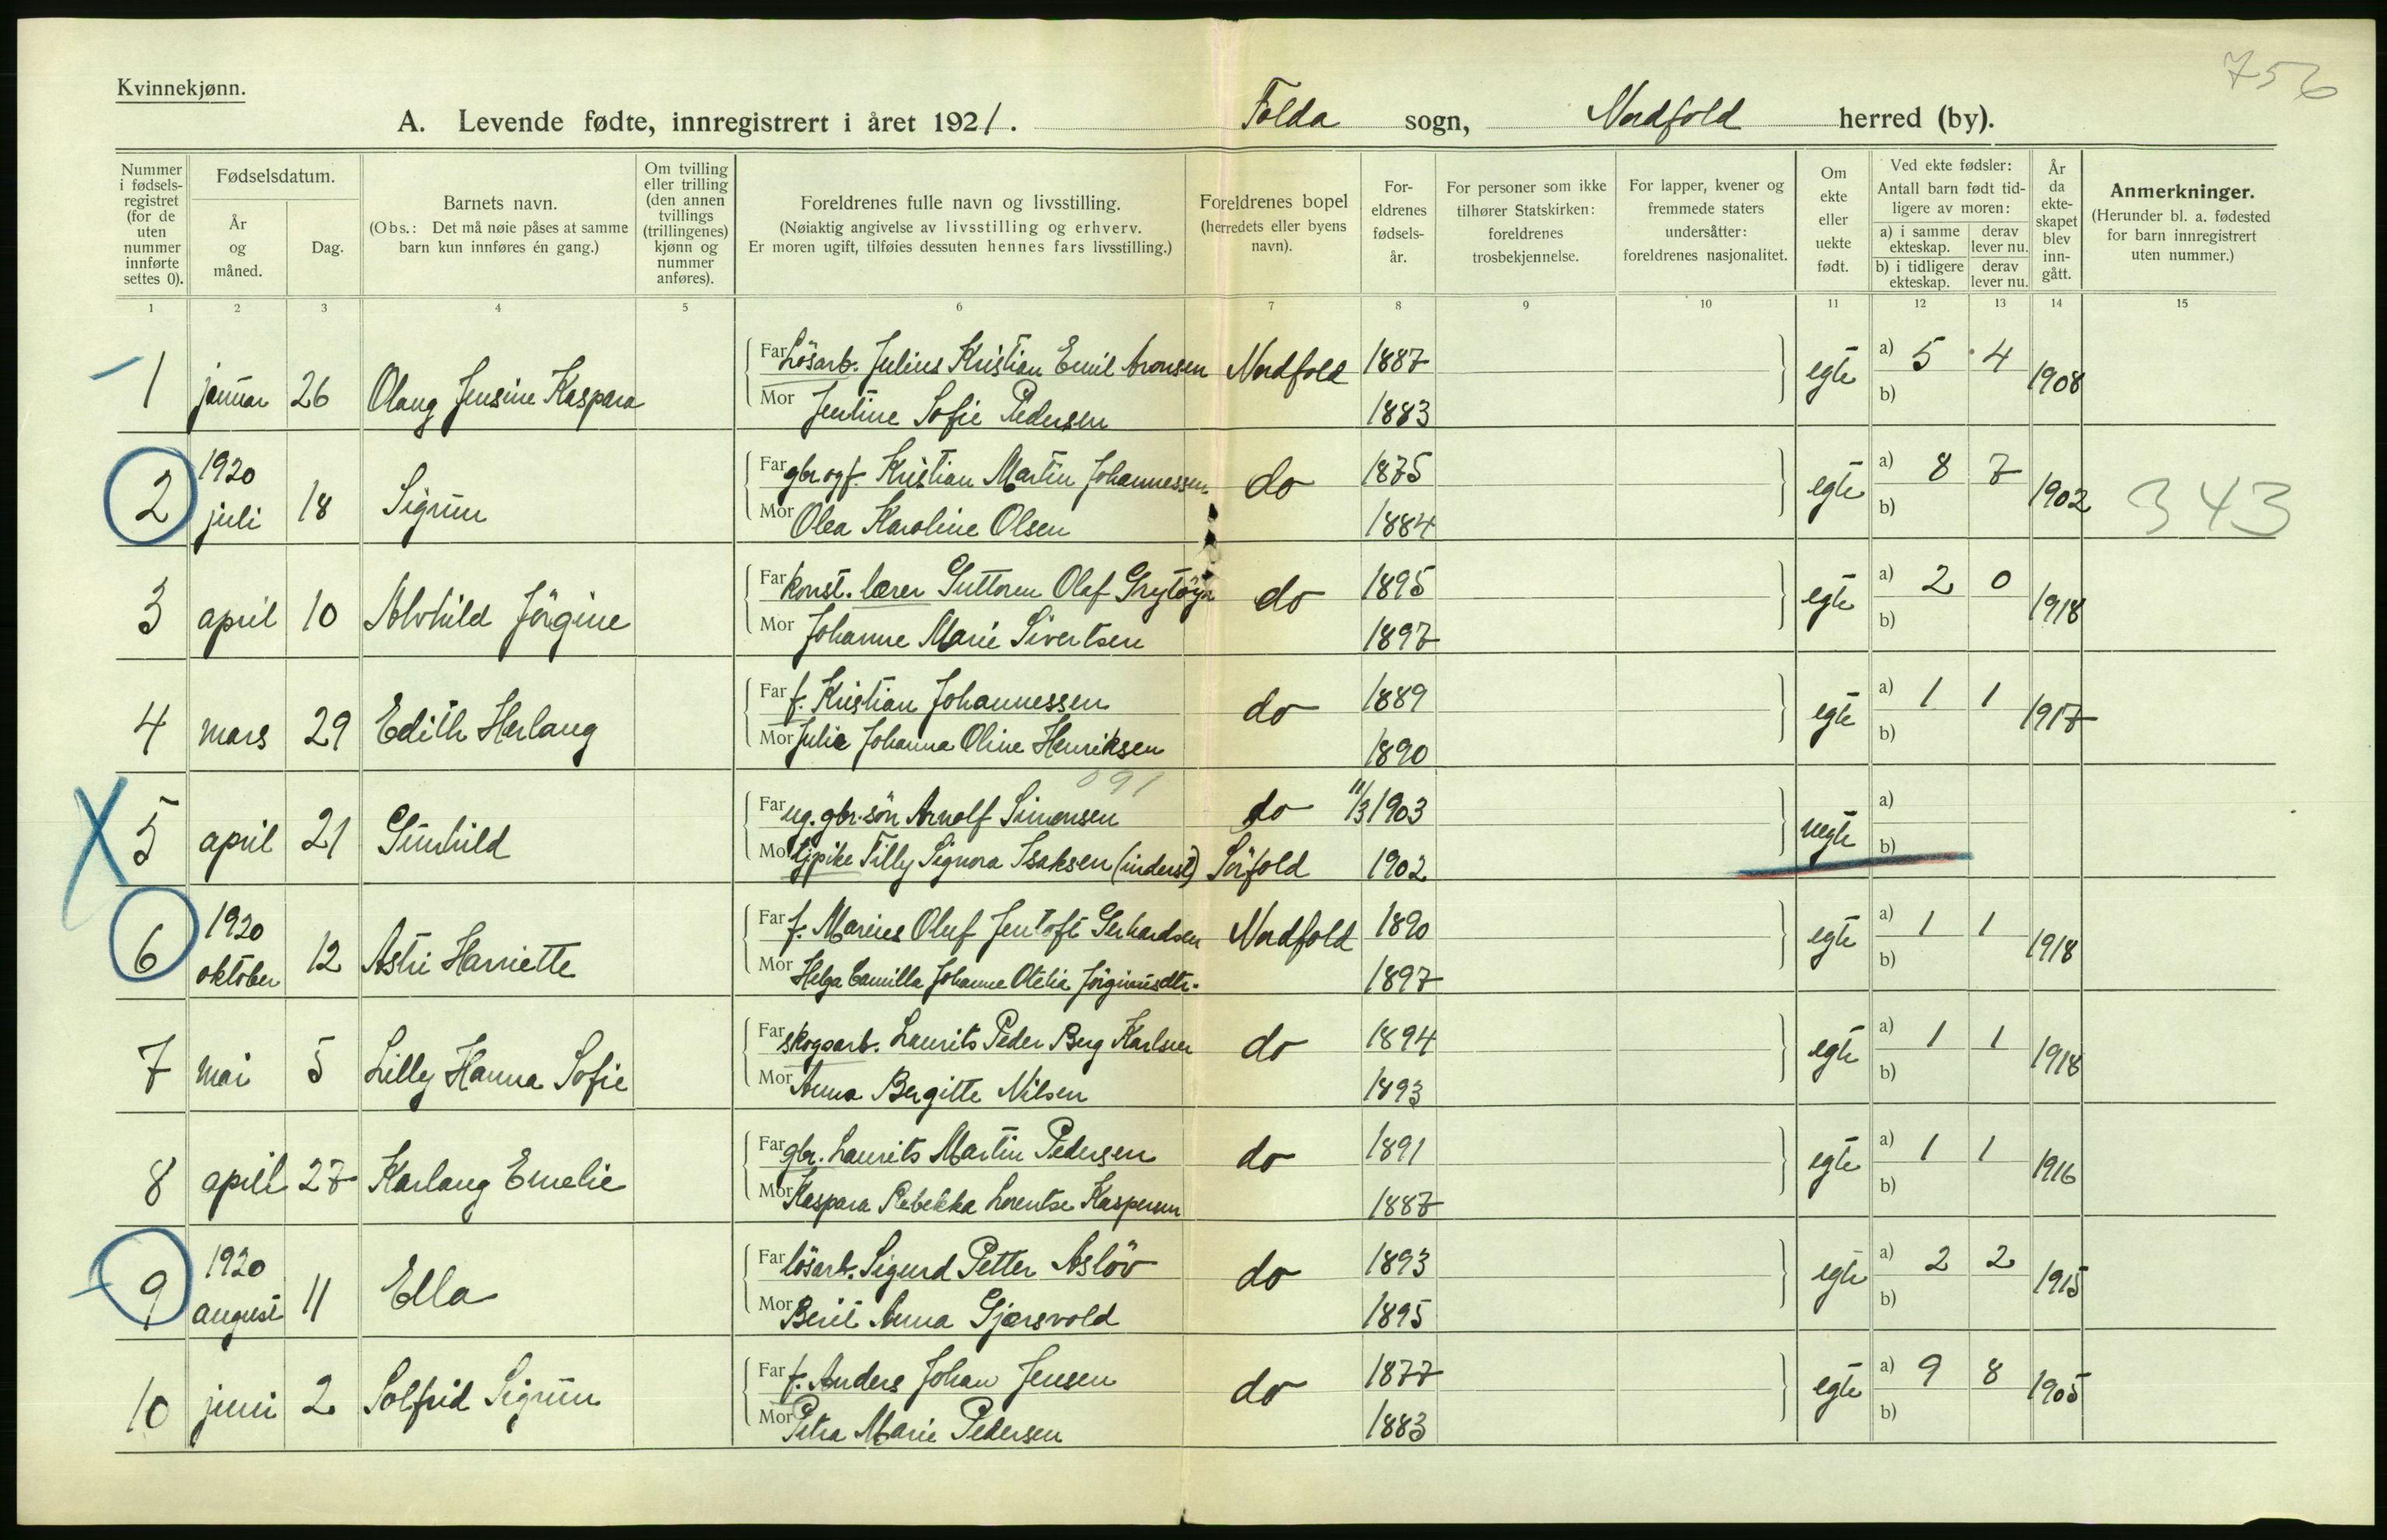 756
Kvinnekjønn.
A. Levende fødte, innregistrert i året 1921. Folda sogn, Nordfold herred (by).
Nummer i fødsels-registret (for de uten nummer innførte settes 0).
Fødselsdatum.
År og måned.
Dag.
Barnets navn.
(Obs.: Det må nøie påses at samme barn kun innføres én gang.)
Om tvilling eller trilling (den annen tvillings (trillingenes) kjønn og nummer anføres).
Foreldrenes fulle navn og livsstilling.
(Nøiaktig angivelse av livsstilling og erhverv.
Er moren ugift, tilføies dessuten hennes fars livsstilling.)
Foreldrenes bopel (herredets eller byens navn).
For-eldrenes fødsels-år.
For personer som ikke tilhører Statskirken: foreldrenes trosbekjennelse.
For lapper, kvener og fremmede staters undersåtter: foreldrenes nasjonalitet.
Om ekte eller uekte født.
Ved ekte fødsler:
Antall barn født tid-ligere av moren:
a) i samme ekteskap. derav lever nu.
b) i tidligere ekteskap. derav lever nu.
År da ekte-skapet blev inn-gått.
Anmerkninger.
(Herunder bl. a. fødested for barn innregistrert uten nummer.)
1 2 3 4 5 6 7 8 9 10 11 12 13 14 15
1 januar 26 Olaug Jensine Kaspara Far Lösarb. Julius Kristian Emil Aronsen Nordfold 1887 egte a) 5 4 1908
Mor Jentine Sofie Pedersen 1883 b)
2 1920 juli 18 Sigrun Far gbr og f. Kristian Martin Johannessen do 1875 egte a) 8 7 1902 343
Mor Olea Karoline Olsen 1884 b)
3 april 10 Alvhild Jörgine Far konst. lærer Guttorm Olaf Grytöyr do 1895 egte a) 2 0 1918
Mor Johanne Marie Sivertsen 1897 b)
4 mars 29 Edith Herlaug Far f. Kristian Johannessen do 1889 egte a) 1 1 1917
Mor Julie Johanna Oline Henriksen 1890 b)
091
5 april 21 Gunhild Far ug. gbr. sön Arnolf Simonsen do 11/3 1903 uegte a)
Mor tjpike Tilly Signora Isaksen (inderst) Sörfold 1902 b)
6 1920 oktober 12 Astri Harriette Far f. Marius Oluf Jentoft Gerhardsen Nordfold 1890 egte a) 1 1 1918
Mor Helga Camilla Johanne Otelia Jörginusdtr. 1897 b)
7 mai 5 Lilly Hanna Sofie Far skogsarb. Laurits Peder Berg Karlsen do 1894 egte a) 1 1 1918
Mor Anna Bergitte Nilsen 1893 b)
8 april 27 Karlaug Emelie Far gbr. Laurits Martin Pedersen do 1891 egte a) 1 1 1916
Mor Kaspara Rebekka Lorentse Kaspersen 1887 b)
9 1920 august 11 Ella Far lösarb. Sigurd Petter Aslöv do 1893 egte a) 2 2 1915
Mor Berit Anna Gjærsvold 1895 b)
10 juni 2 Solfrid Sigrun Far f. Anders Johan Jensen do 1877 egte a) 9 8 1905
Mor Petra Marie Pedersen 1883 b)